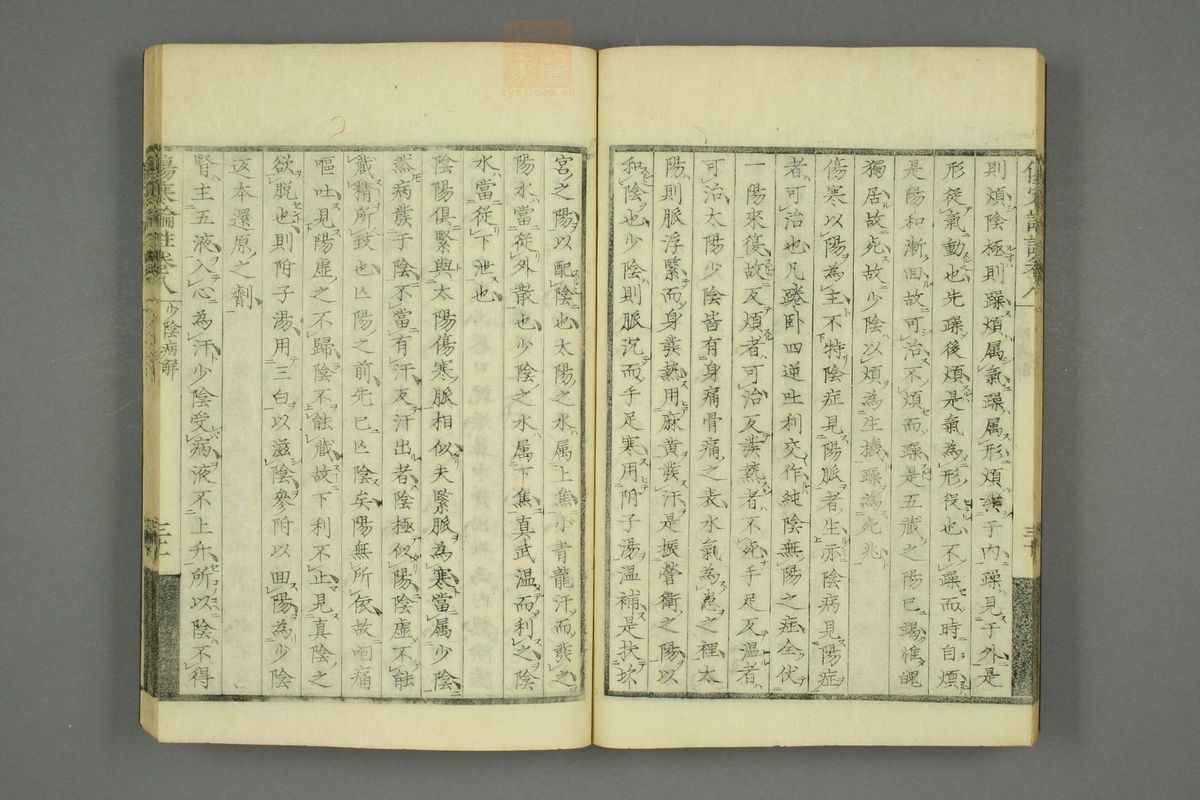 則煩陰極則躁煩属氣躁属形煩發于内躁見于外是
形從氣動也先躁後煩是氣為形役也不躁而時自煩
是陽和漸回故可治不煩而躁是五藏之陽已竭惟魄
獨居故死故少陰以煩為生機躁為死兆
傷寒以陽為主不特陰症見陽脈者生亦陰病見陽症
者可治也凡踡卧四逆吐利交作純陰無陽之症全伏
一陽來復故反煩者可治反發熱者不死手足反温者
可治太陽少陰皆有身痛骨痛之表水氣為患之裡太
陽則脈浮緊而身發熱用麻黄發汗是振營衛之陽以
和陰也少陰則脈沉而手足寒用附子湯温補是扶坎
宮之陽以配陰也太陽之水属上焦小青龍汗而發之
陽水當從外散也少陰之水属下焦真武温而利之陰
水當從下泄也
陰陽俱緊與太陽傷寒脈相似夫緊脈為寒當属少陰
然病發于陰不當有汗反汗出者陰極似陽陰虚不能
藏精所致也亡陽之前先已亡陰矣陽無所依故咽痛
嘔吐見陽虚之不歸陰不能藏故下利不止見真陰之
欲脱也則附子湯用三白以滋陰參附以回陽為少陰
返本還原之劑
腎主五液入心為汗少陰受病液不上升所以陰不得
傷寒論註卷八
少陰病解
三十一
三十
zysj.com.cn